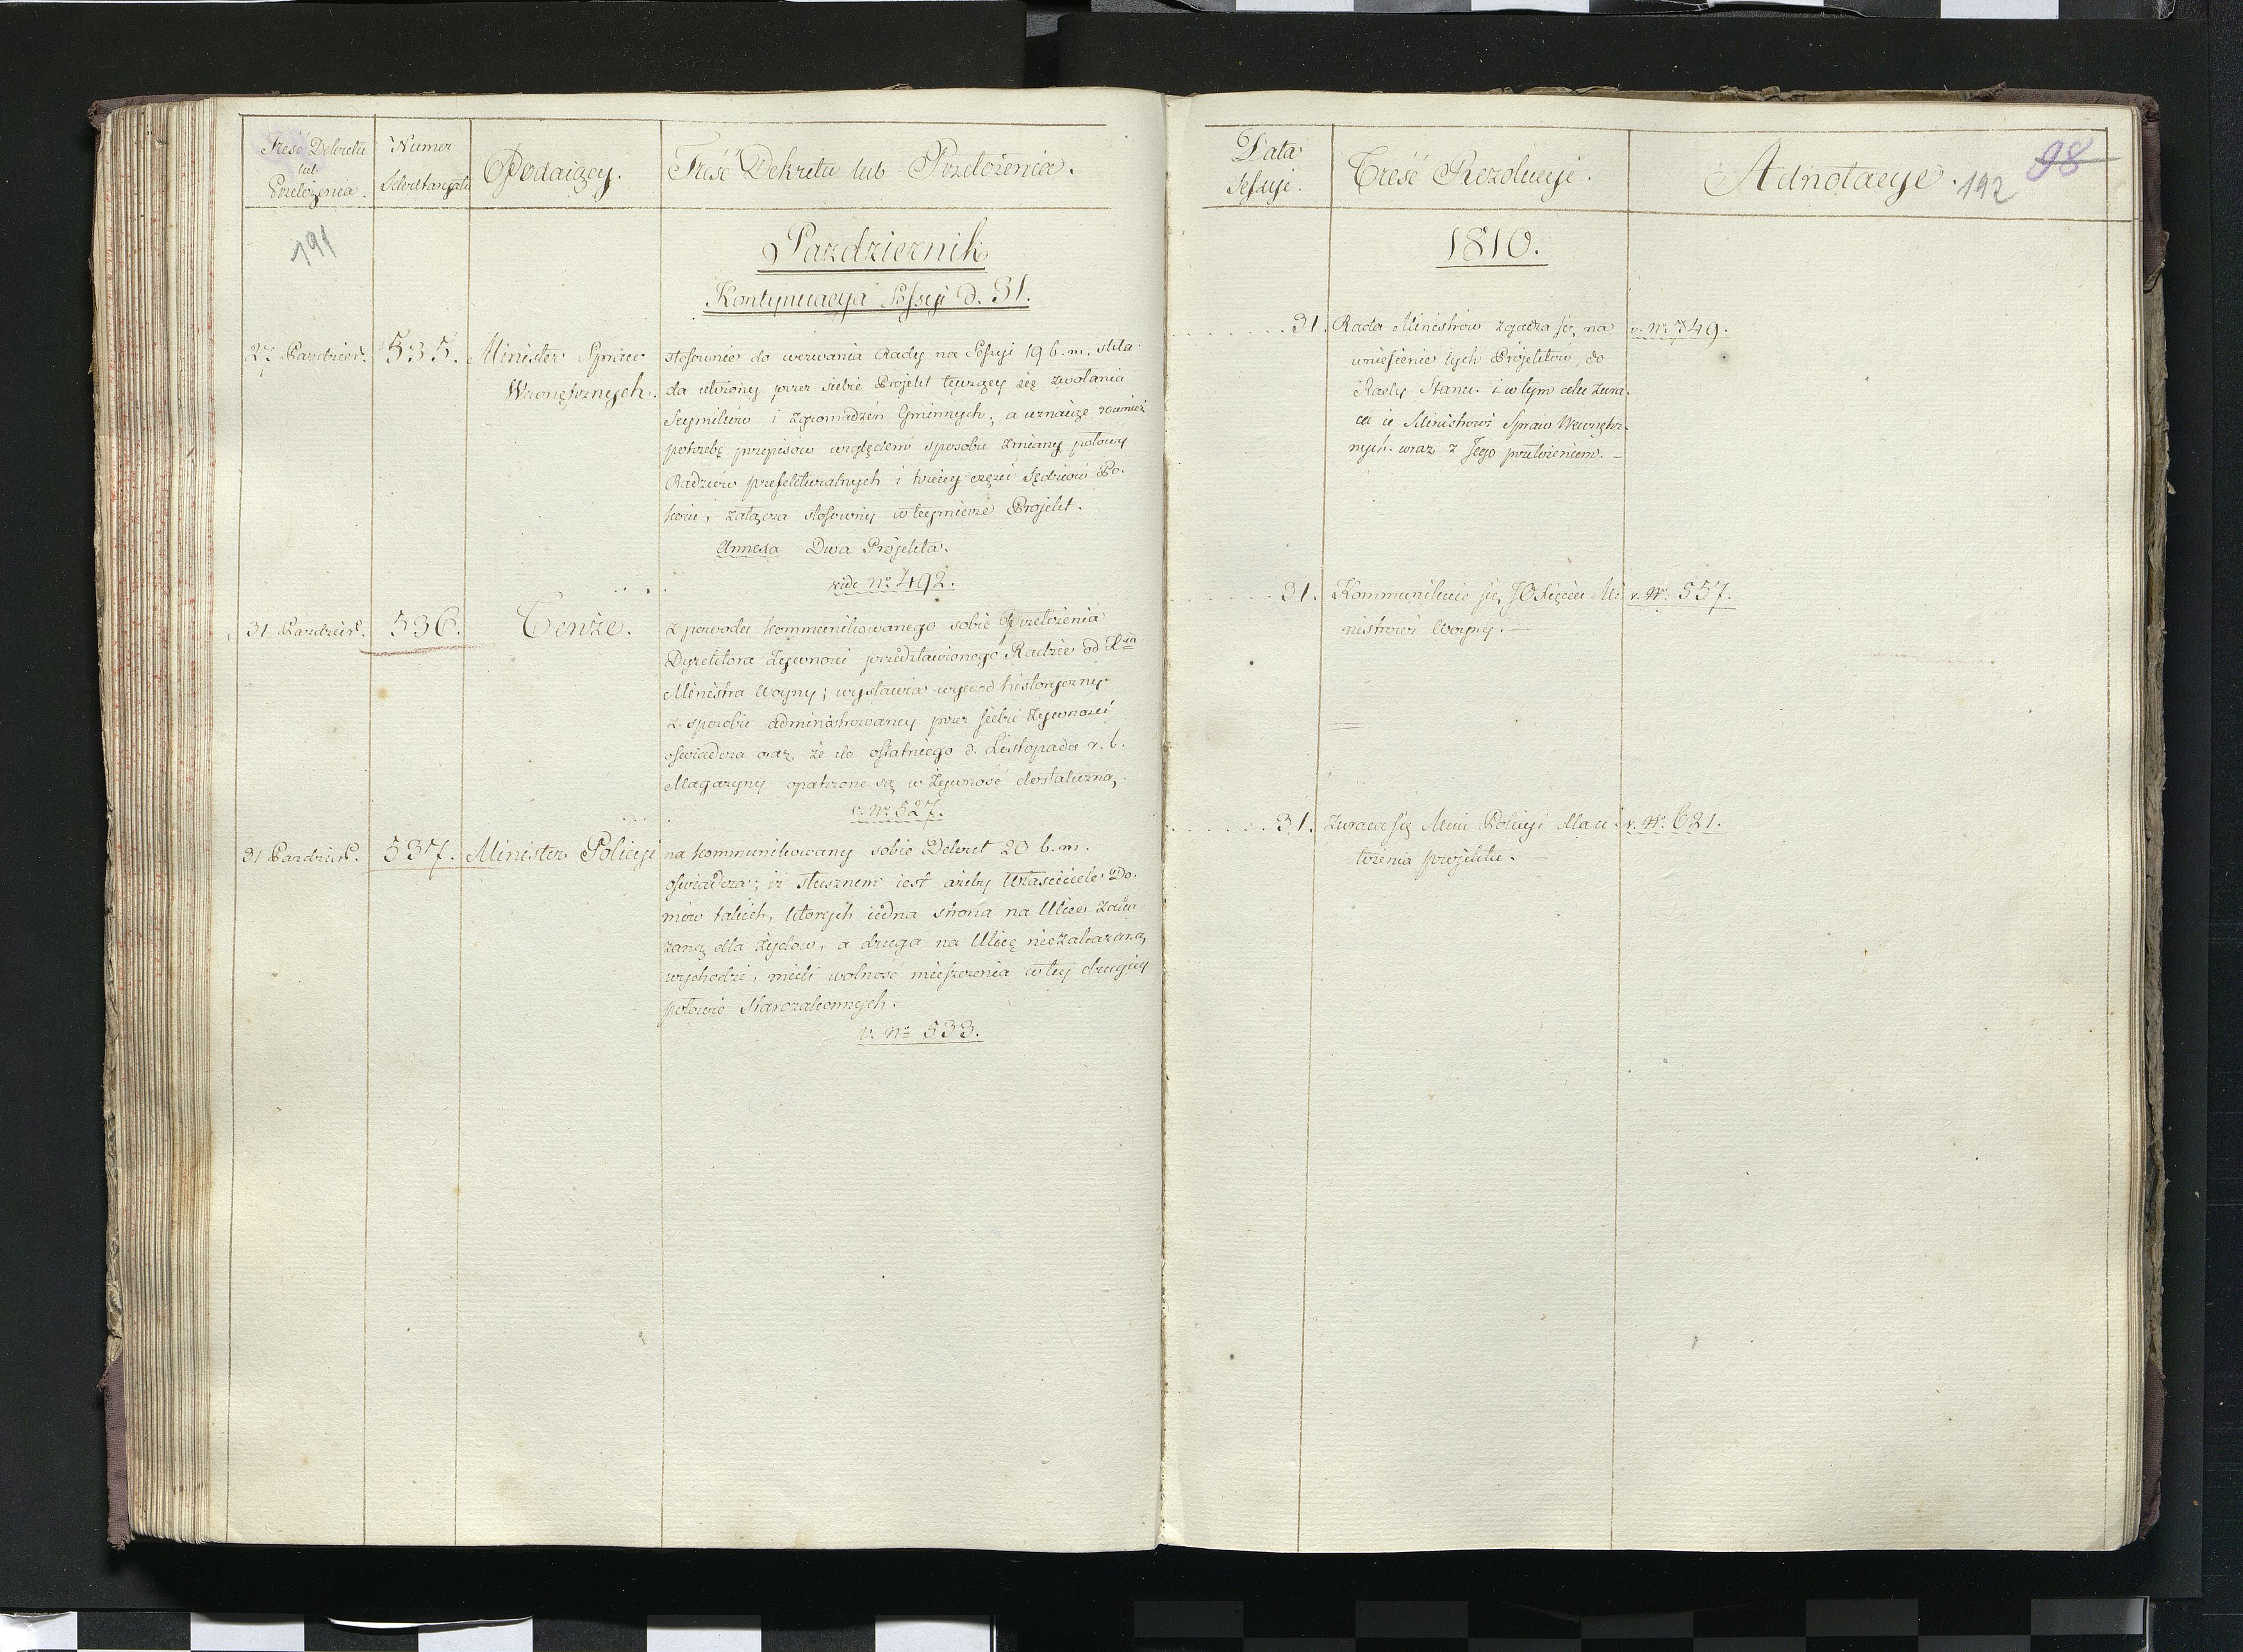 Treść Dekretu
lub
Przełożenia.
Numer
Sekretaryatu
Podaiący.
Treść Dekretu lub Przełożenia.
191
Pazdziernik
Kontynuacya Sessyi d. 31.
27 Pazdzier.
535.
Minister Spraw
Wewnętrznych.
stosownie do wezwania Rady na Sessyi 19 b. m. skła
da ułożony przez siebie Projekt tyczący się zwołania
Seymików i Zgromadzeń Gminnych; a uznaiąc również
potrzebę przepisów względem sposobu zmiany połowy
Radzców prefekturalnych i trzeciey części Sędziów Po.
koiu, załącza stosowny w teymierze Projekt.
Annexa Dwa Projekta.
vide No 492.
31 Pazdzier.
536.
Tenże.
z powodu kommunikowanego sobie Przełożenia
Dyrektora Żywności przedstawionego Radzie od Xia
Ministra Woyny; wystawia wywod historyczny
z sposobu administrowaney przez siebie Żywności
oświadcza oraz, że do ostatniego d. Listopada r. b.
Magazyny opatrzone są w Żywność dostateczną.
v. No 527.
31 Pazdzier.
537.
Minister Policyi
na kommunikowany sobie Dekret 20 b. m.
oświadcza; iż słusznem iest ażeby Właściciele Do.
mów takich, których iedna strona na Ulicę Zaka
zaną dla Żydów, a druga na Ulicę niezakazaną
wychodzi, mieli wolność mieszczenia w tey drugiey
połowie Starozakonnych.
v. No 533.
Data
Sessyi.
Treść Rezolucyi.
Adnotacye.
192
98
1810.
31.
Rada Ministrów zgadza się na
wniesienie tych Projektów do
Rady Stanu i w tym celu zwra.
ca ie Ministrowi Spraw Wewnętrz.
nych wraz z Jego przełożeniem.
v. No 749.
31.
Kommunikuie się JO Xięciu Mi
nistrowi Woyny.
v. No 557.
31.
Zwraca się Mini Policyi dla u.
łożenia projektu.
v. No 621.